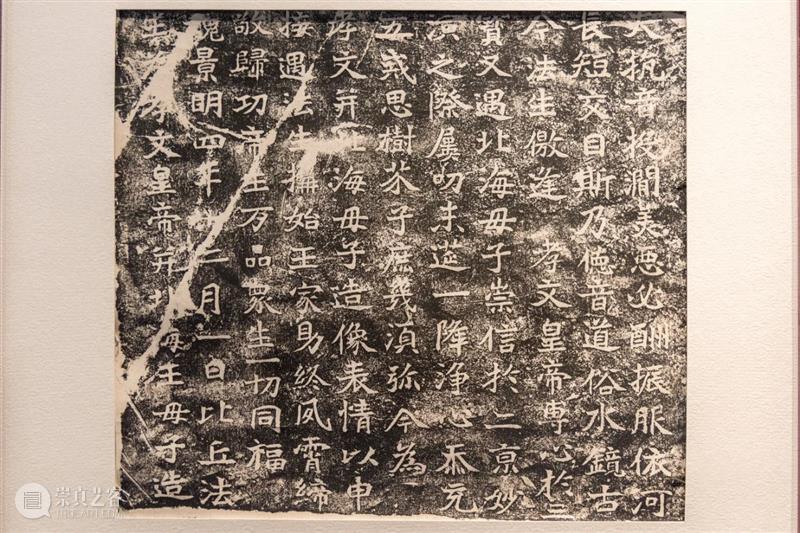 夫抗音投澗美惡必酬振服依河
長短交目斯乃德音道俗水鏡古
今法生儌逢 孝文皇帝專心於三
寶又遇北海母子崇信於二京妙
演之際屢叨末筵一降淨心忝充
五戒思樹芥子庶幾須彌今為
孝文并北海母子造像表情以申
接遇法生構始王家助終夙霄締
敬歸功帝王万品眾生一切同福
魏景明四年十二月一日比丘法
生為孝文皇帝并北海王母子造
崇真艺客